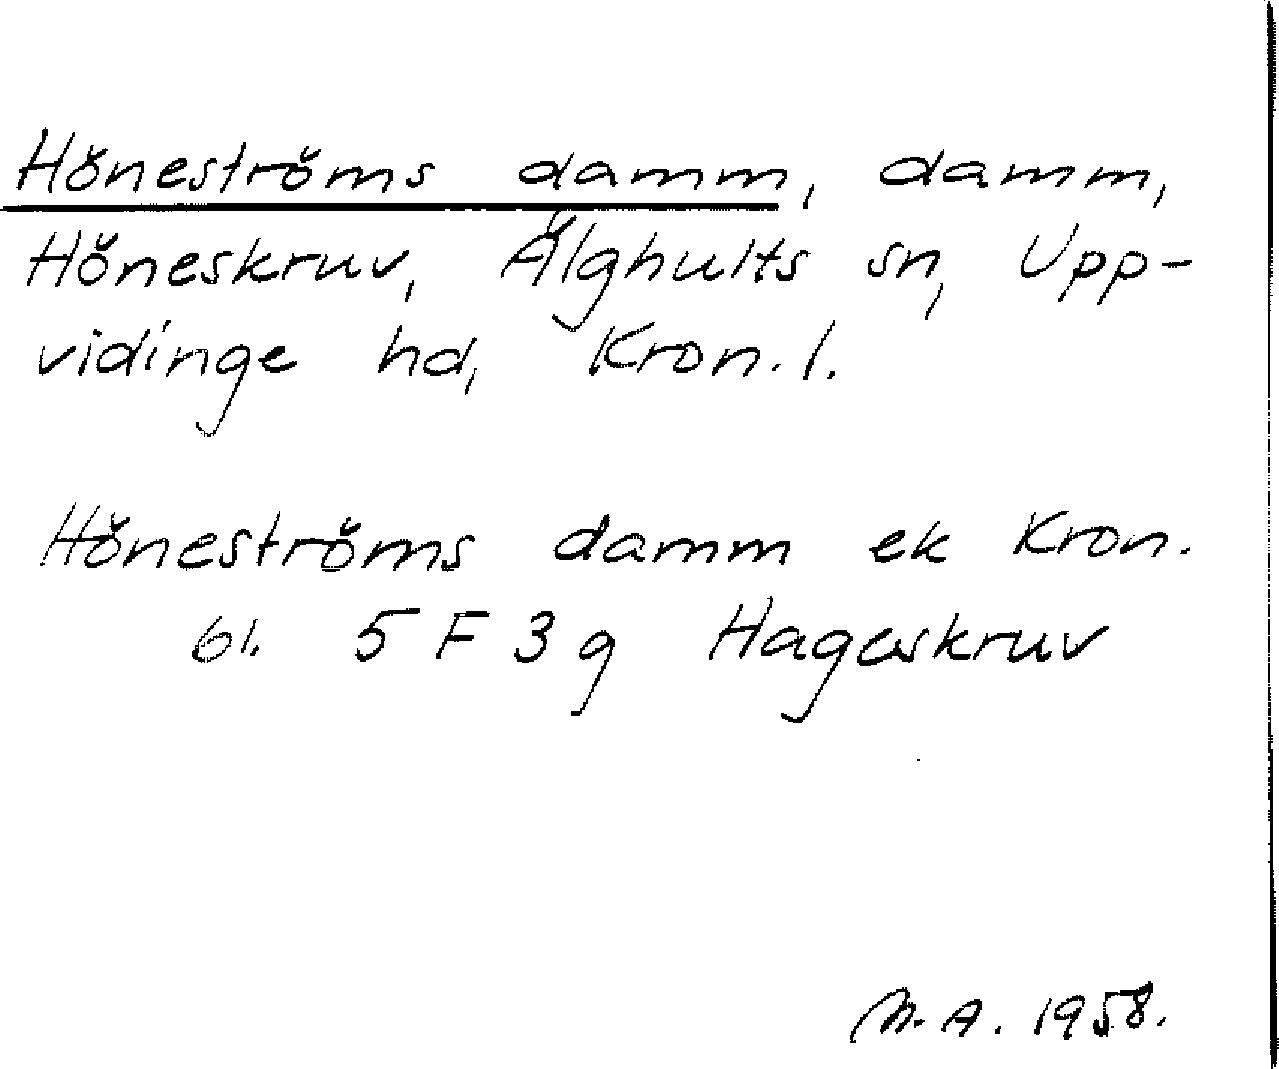 Höneströms damm, damm,
Höneskruv, Älghults sn, Upp-
vidinge hd, Kron. l.
Höneströms damm ek Kron.
bl. 5 F 3 g Hageskruv
M. A. 1958.